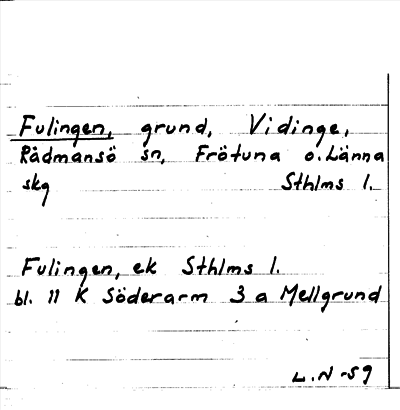 Fulingen, grund, Vidinge,
Rådmansö sn, Frötuna o. Länna
skg Sthlms l.
Fulingen, ek Sthlms l.
bl. 11 K Söderarm 3 a Mellgrund
L.N -59